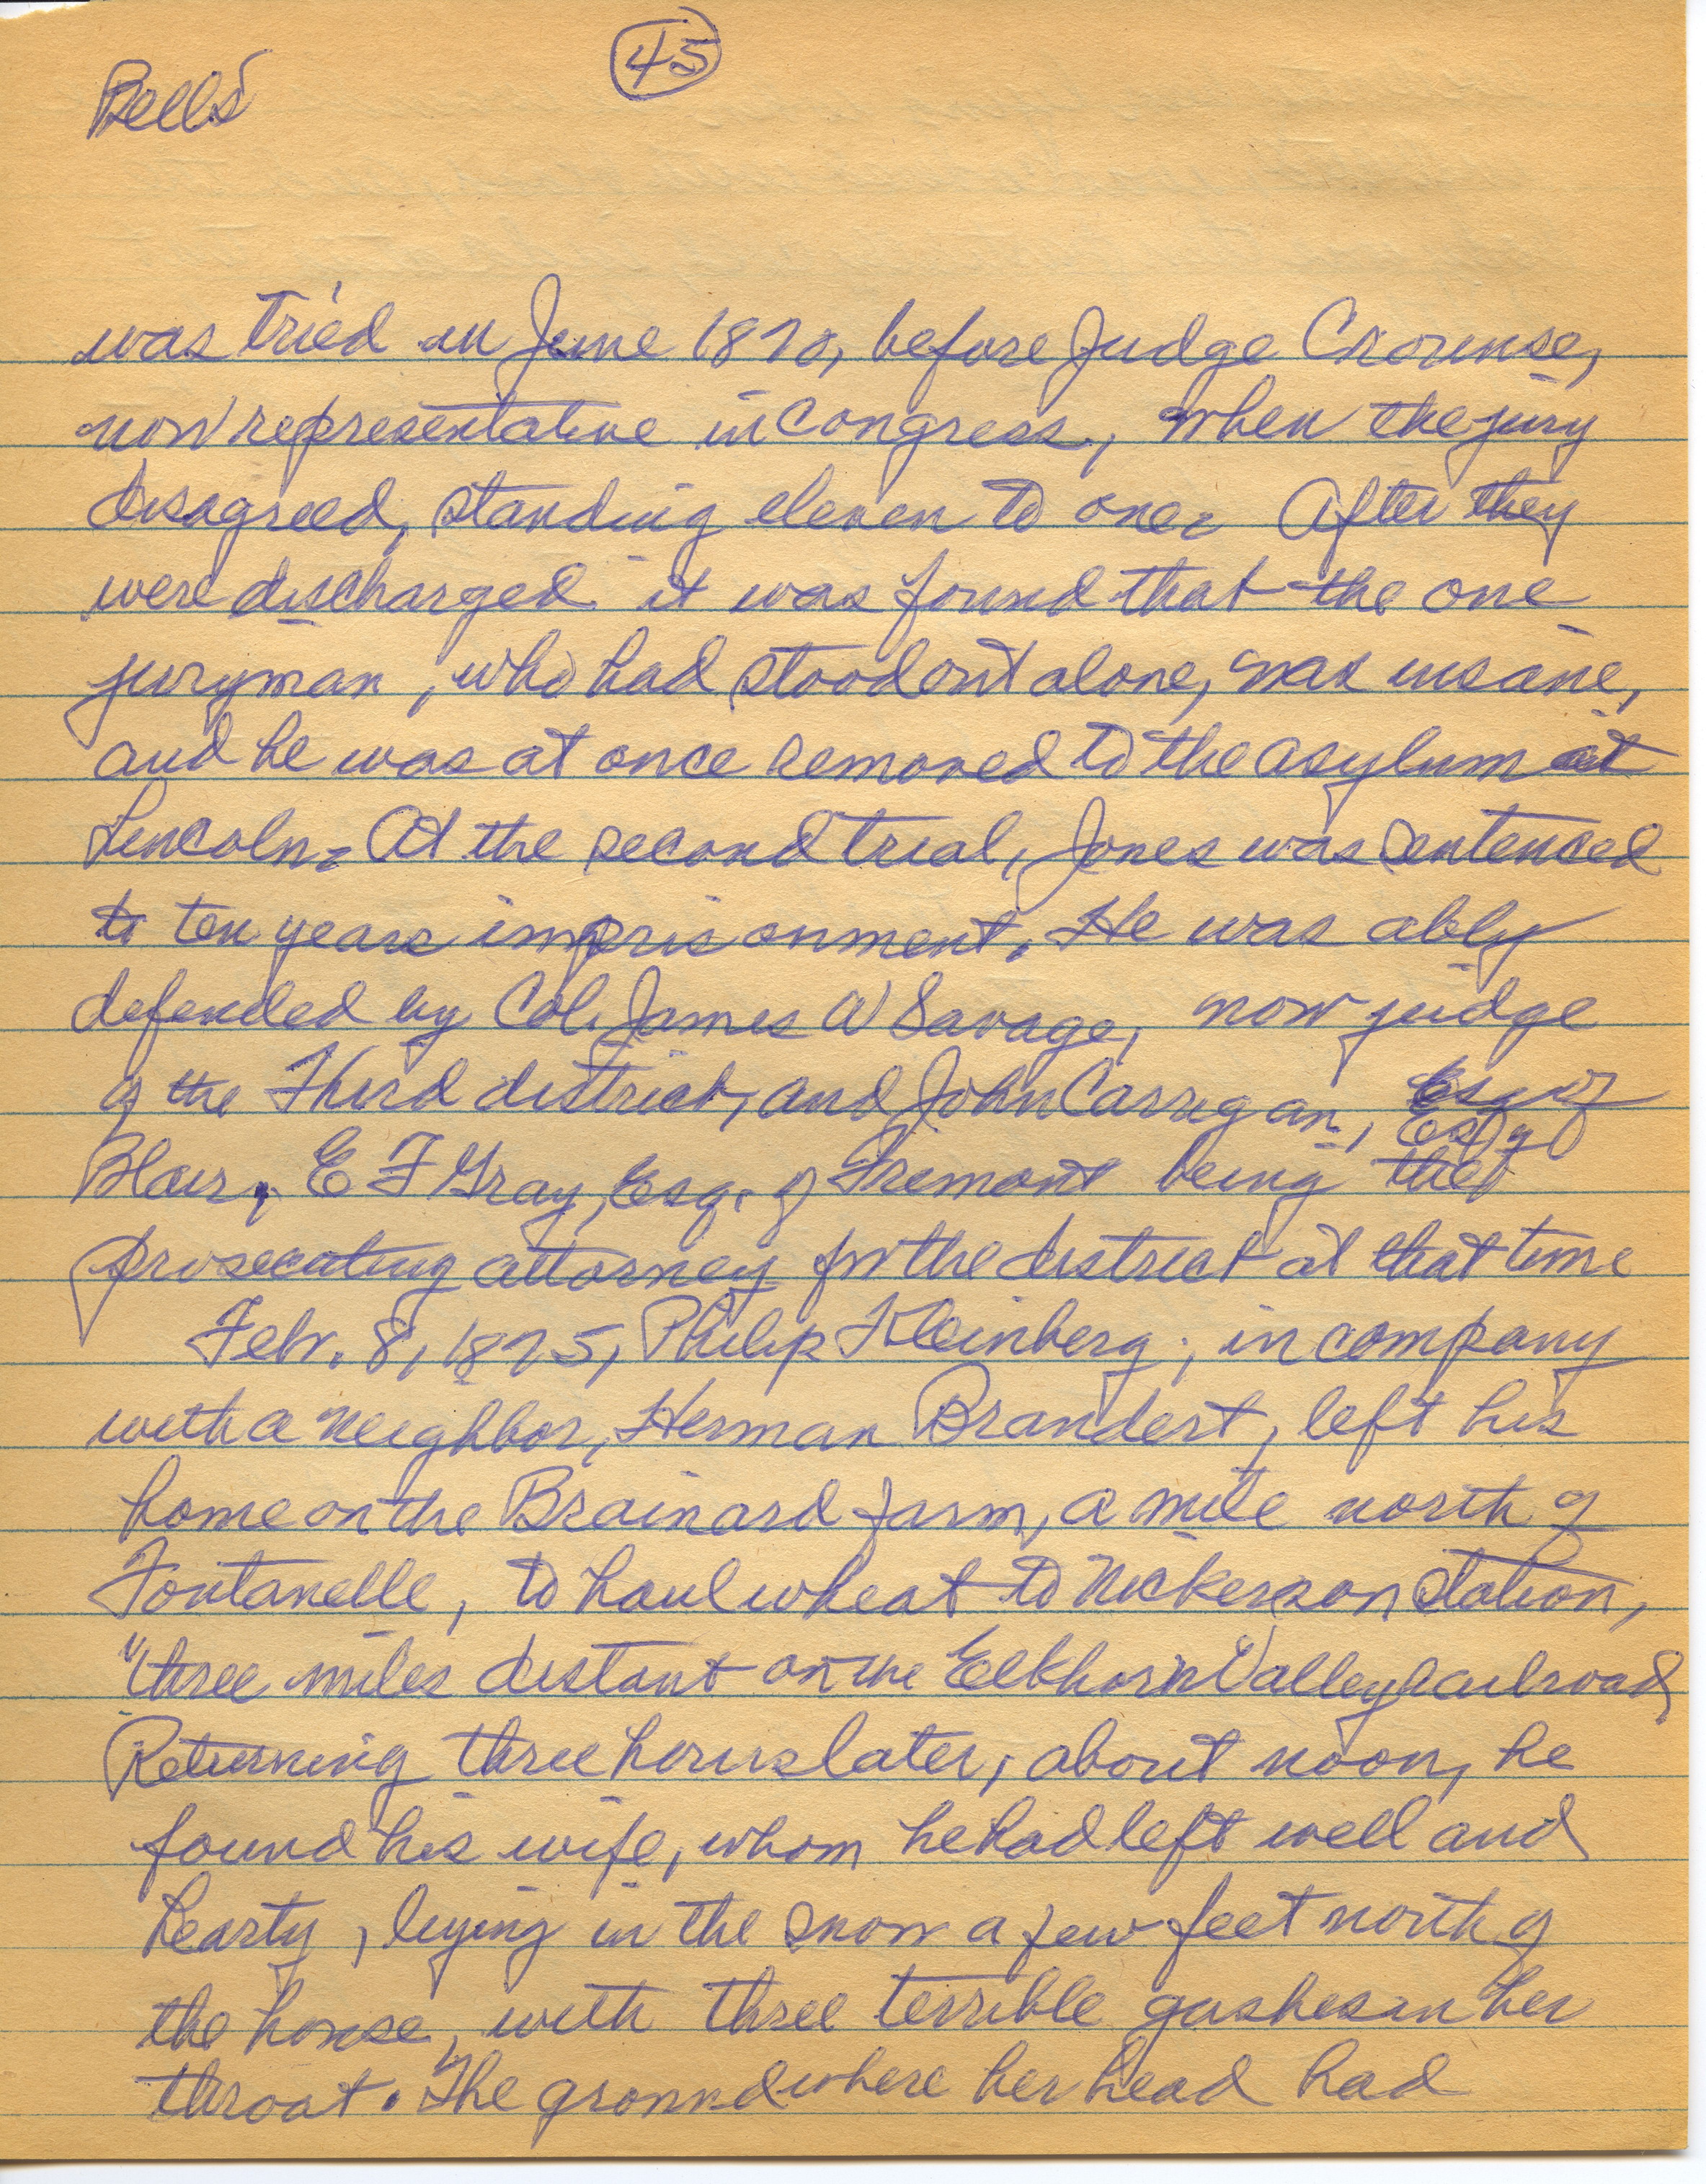 45
Bells
was tried in June 1870, before Judge Crounse,
now representative in Congress, when the jury
disagreed, standing eleven to one. After they
were discharged it was found that the one
juryman, who had stood out alone, was insane,
and he was at once removed to the asylum at
Lincoln. At the second trial, Jones was sentenced
to ten years imprisonment. He was ably
defended by Col. James W Savage, now judge
of the Third district, and John Carrigan, Esq of
Blair, E F Gray, Esq. of Fremont being the
prosecuting attorney for the district at that time
Febr. 8, 1875, Philip Kleinberg, in company
with a neighbor, Herman Brandert, left his
home on the Brainard farm, a mile north of
Fontanelle, to haul wheat to Nickerson Station,
"three miles distant on the Elkhorn Valley railroad
Returning three hours later, about noon, he
found his wife, whom he had left well and
hearty, lying in the snow a few feet north of
the house, with three terrible gashes in her
throat. The ground where her head had